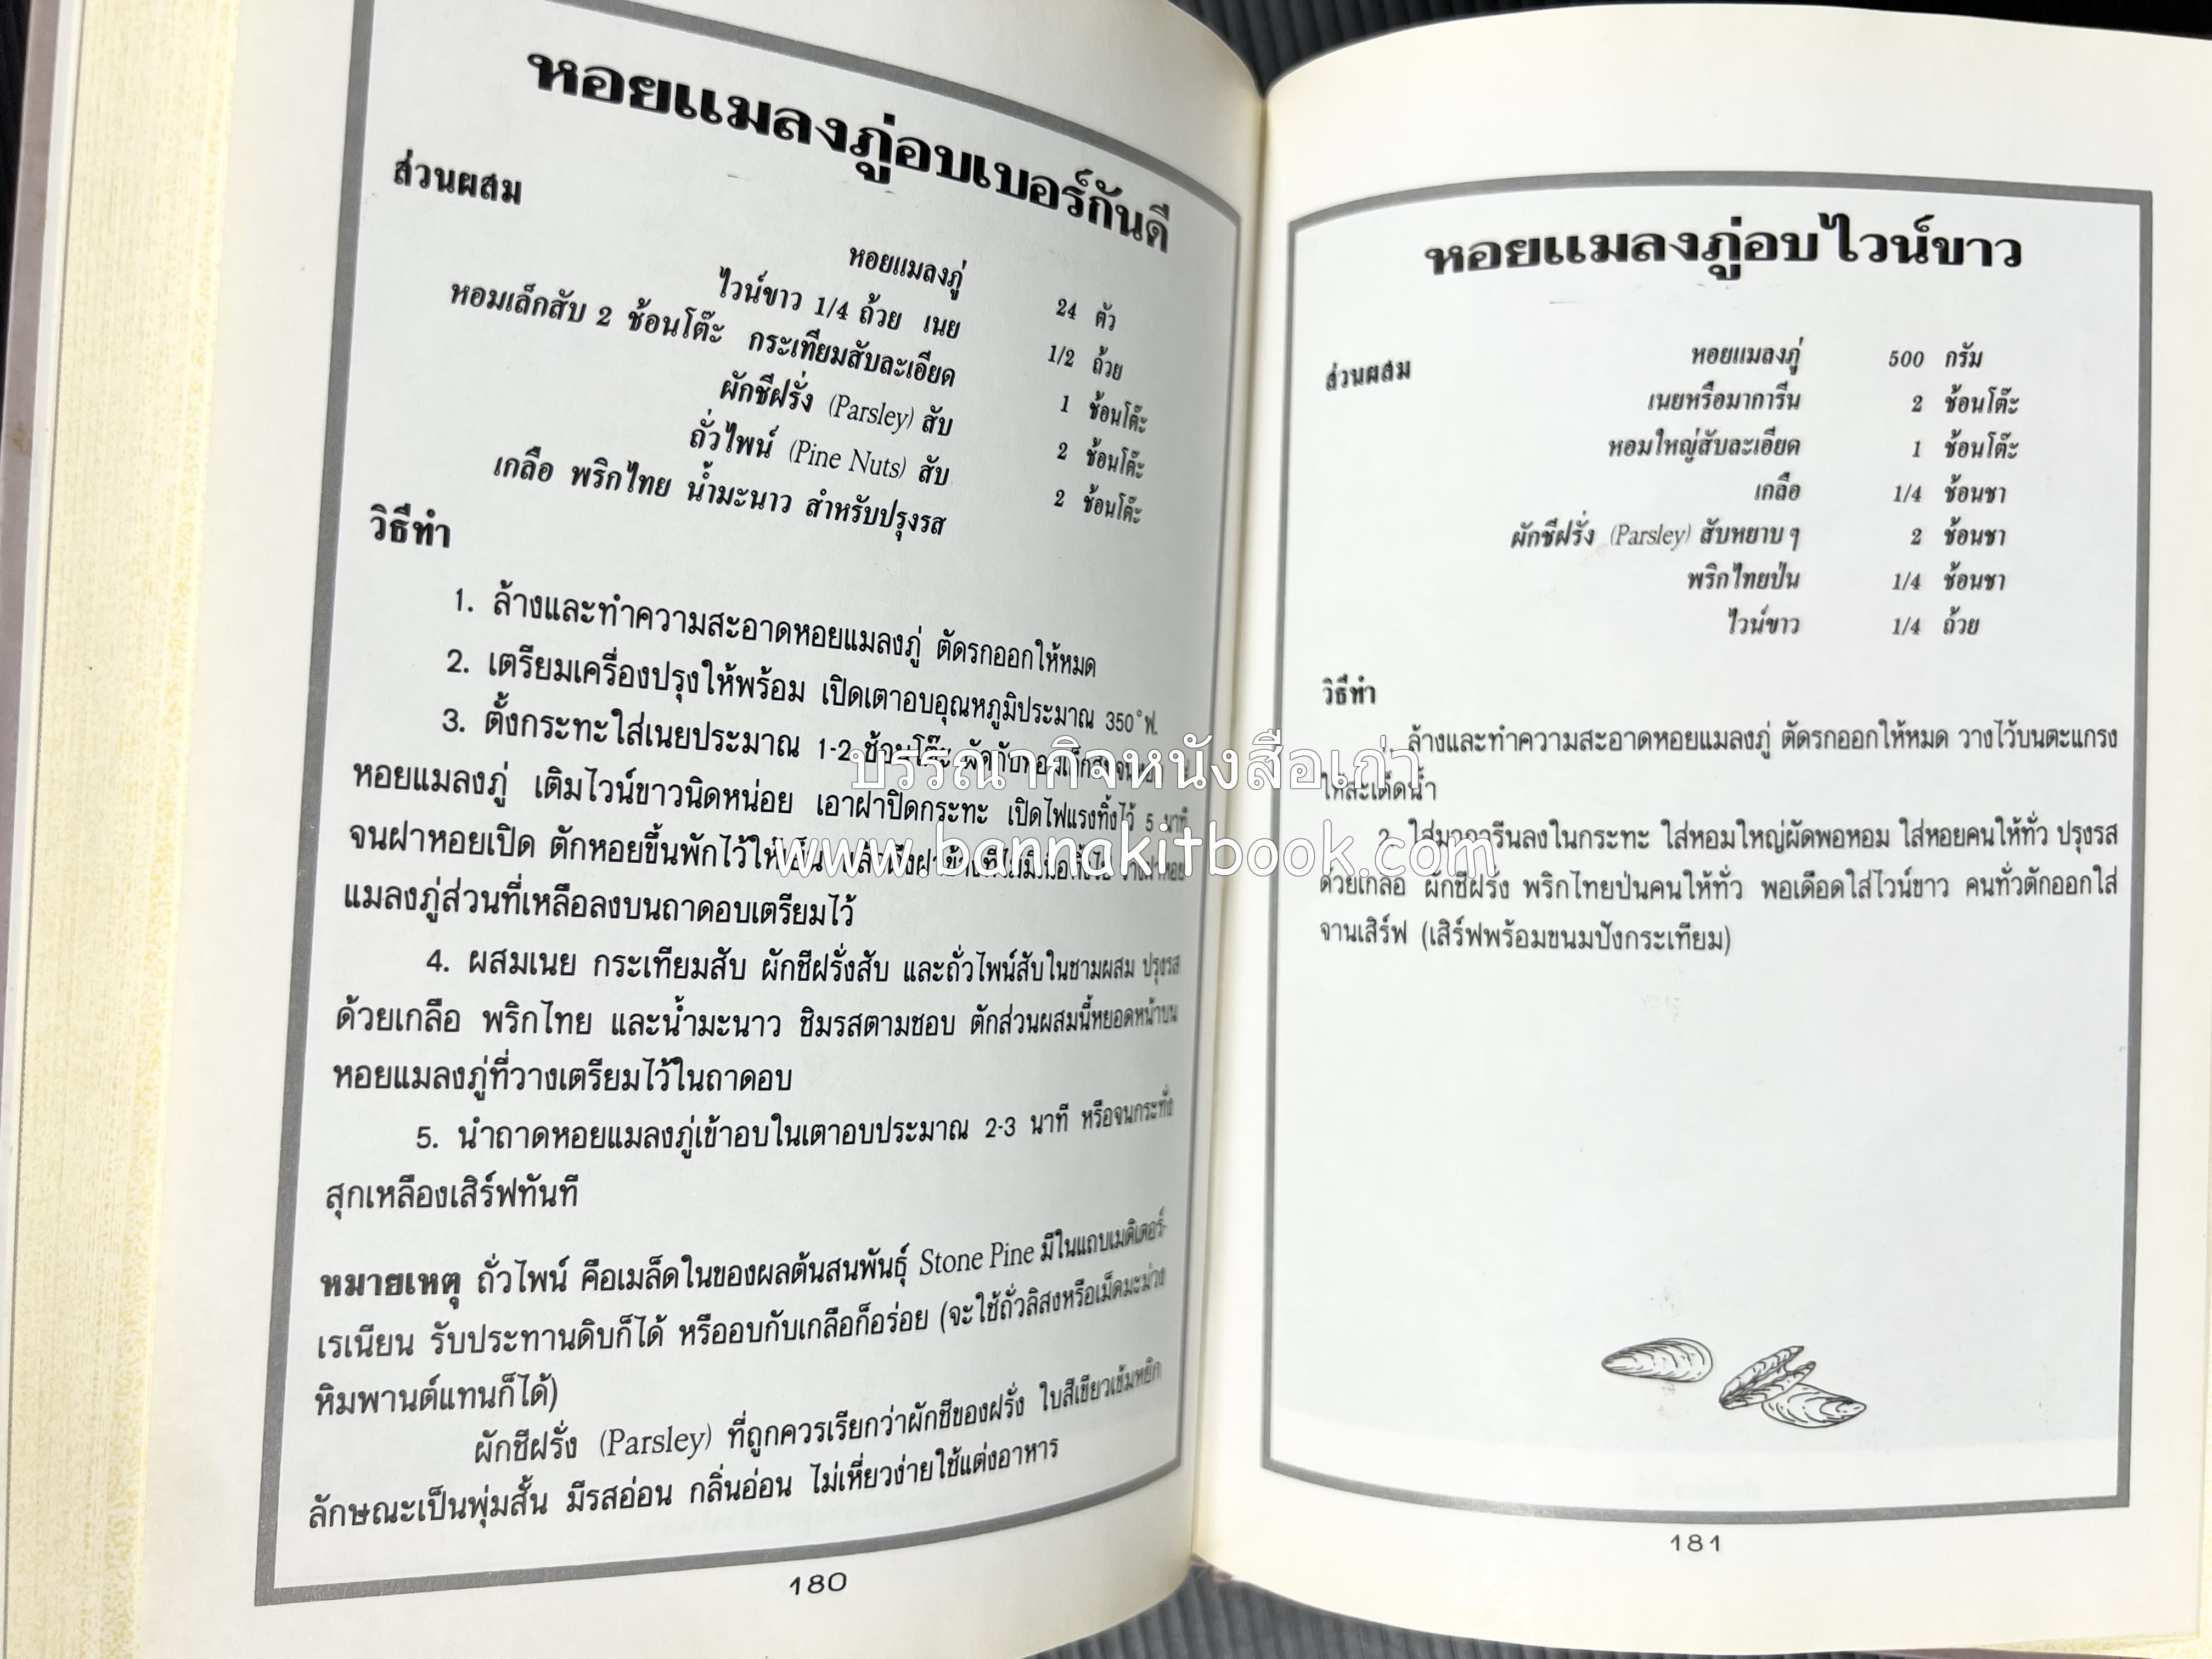 หอยแมลงภู่อบเบอร์กันดี
ส่วนผสม
หอยแมลงภู่ 24 ตัว
ไวน์ขาว 1/4 ถ้วย เนย 1/2 ถ้วย
หอมเล็กสับ 2 ช้อนโต๊ะ กระเทียมสับละเอียด 1 ช้อนโต๊ะ
ผักชีฝรั่ง (Parsley) สับ 2 ช้อนโต๊ะ
ถั่วไพน์ (Pine Nuts) สับ 2 ช้อนโต๊ะ
เกลือ พริกไทย น้ำมะนาว สำหรับปรุงรส
วิธีทำ
1. ล้างและทำความสะอาดหอยแมลงภู่ ตัดรกออกให้หมด
2. เตรียมเครื่องปรุงให้พร้อม เปิดเตาอบอุณหภูมิประมาณ 350°ฟ.
3. ตั้งกระทะใส่เนยประมาณ 1-2 ช้อนโต๊ะ ผัดกับหอมเล็ก
หอยแมลงภู่ เติมไวน์ขาวนิดหน่อย เอาฝาปิดกระทะ เปิดไฟแรงทิ้งไว้ 5 นาที
จนฝาหอยเปิด ตักหอยขึ้นพักไว้ให้เย็น
แมลงภู่ส่วนที่เหลือลงบนถาดอบเตรียมไว้
4. ผสมเนย กระเทียมสับ ผักชีฝรั่งสับ และถั่วไพน์สับในชามผสม ปรุงรส
ด้วยเกลือ พริกไทย และน้ำมะนาว ชิมรสตามชอบ ตักส่วนผสมนี้หยอดหน้าบน
หอยแมลงภู่ที่วางเตรียมไว้ในถาดอบ
5. นำถาดหอยแมลงภู่เข้าอบในเตาอบประมาณ 2-3 นาที หรือจนกระทั่ง
สุกเหลืองเสิร์ฟทันที
หมายเหตุ ถั่วไพน์ คือเมล็ดในของผลต้นสนพันธุ์ Stone Pine มีในแถบเมดิเตอร์-
เรเนียน รับประทานดิบก็ได้ หรืออบกับเกลือก็อร่อย (จะใช้ถั่วลิสงหรือเม็ดมะม่วง
หิมพานต์แทนก็ได้)
ผักชีฝรั่ง (Parsley) ที่ถูกควรเรียกว่าผักชีของฝรั่ง ใบสีเขียวเข้มหยิก
ลักษณะเป็นพุ่มสั้น มีรสอ่อน กลิ่นอ่อน ไม่เหี่ยวง่ายใช้แต่งอาหาร
180
หอยแมลงภู่อบไวน์ขาว
ส่วนผสม
หอยแมลงภู่ 500 กรัม
เนยหรือมาการีน 2 ช้อนโต๊ะ
หอมใหญ่สับละเอียด 1 ช้อนโต๊ะ
เกลือ 1/4 ช้อนชา
ผักชีฝรั่ง (Parsley) สับหยาบๆ 2 ช้อนชา
พริกไทยป่น 1/4 ช้อนชา
ไวน์ขาว 1/4 ถ้วย
วิธีทำ
ล้างและทำความสะอาดหอยแมลงภู่ ตัดรกออกให้หมด วางไว้บนตะแกรง
ให้สะเด็ดน้ำ
2. ใส่มาการีนลงในกระทะ ใส่หอมใหญ่ผัดพอหอม ใส่หอยคนให้ทั่ว ปรุงรส
ด้วยเกลือ ผักชีฝรั่ง พริกไทยป่นคนให้ทั่ว พอเดือดใส่ไวน์ขาว คนทั่วตักออกใส่
จานเสิร์ฟ (เสิร์ฟพร้อมขนมปังกระเทียม)
181
บรรณากิจหนังสือเก่า
www.bannakitbook.com